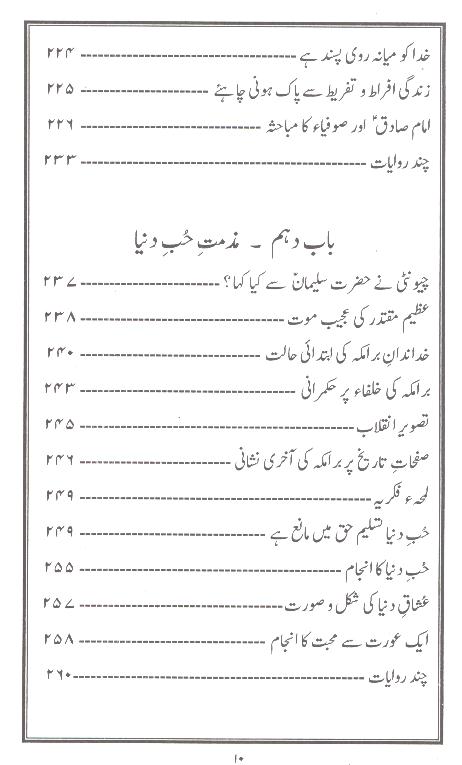 خدا کو میانہ روی پسند ہے ------------------------------ ۲۲۴
زندگی افراط و تفریط سے پاک ہونی چاہئے ------------------ ۲۲۵
امام صادق ؑ اور صوفیاء کا مباحثہ -------------------------- ۲۲۶
چند روایات -------------------------------------------- ۲۳۳
باب دہم ۔ مذمتِ حُبِ دنیا
چیونٹی نے حضرت سلیمان سے کیا کہا؟ -------------------- ۲۳۷
عظیم مقتدر کی عجیب موت ------------------------------- ۲۳۸
خداندانِ برامکہ کی ابتدائی حالت --------------------------- ۲۴۰
برامکہ کی خلفاء پر حکمرانی ------------------------------ ۲۴۳
تصویرِ انقلاب ---------------------------------------- ۲۴۵
صفحاتِ تاریخ پر برامکہ کی آخری نشانی --------------------- ۲۴۶
لمحہء فکریہ ------------------------------------------ ۲۴۹
حُبِ دنیا تسلیم حق میں مانع ہے --------------------------- ۲۴۹
حُبِ دنیا کا انجام -------------------------------------- ۲۵۵
عشاقِ دنیا کی شکل و صورت ----------------------------- ۲۵۷
ایک عورت سے محبت کا انجام --------------------------- ۲۵۸
چند روایات ------------------------------------------ ۲۶۰
۱۰